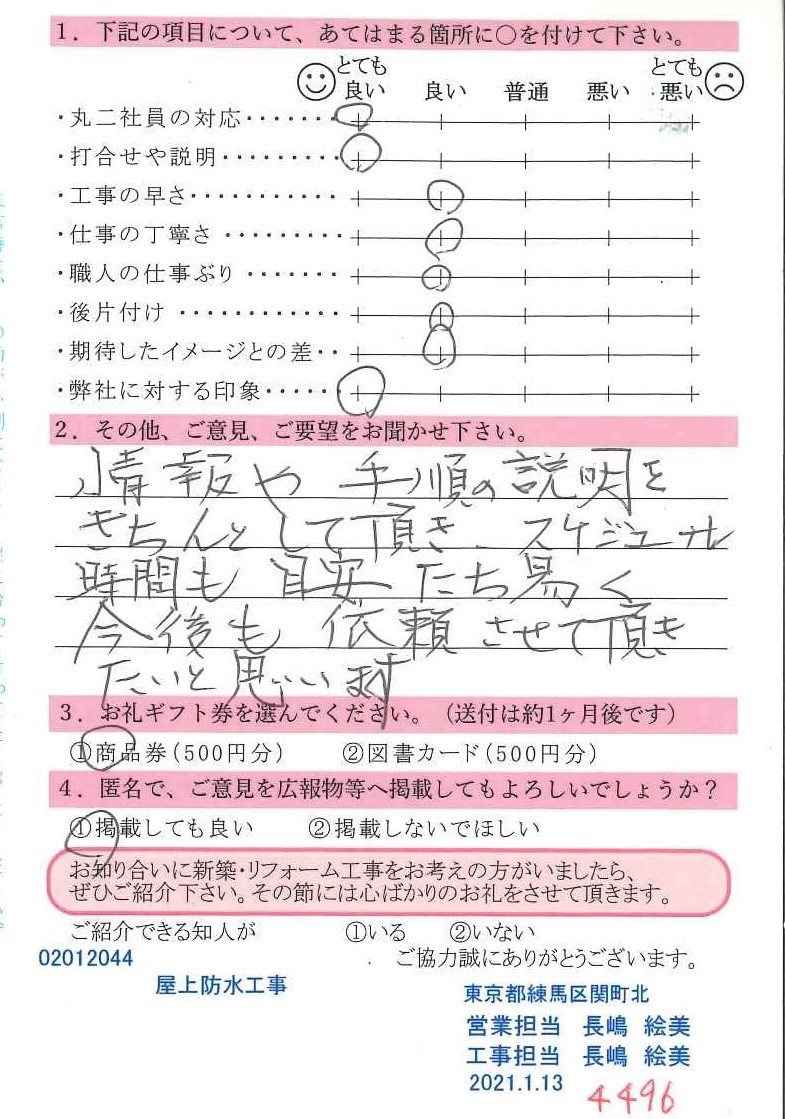 1．下記の項目について、あてはまる箇所に○を付けて下さい。
とても良い 良い 普通 悪い とても悪い
・丸二社員の対応・・・・・・・
・打合せや説明・・・・・・・・・
・工事の早さ・・・・・・・・・・・
・仕事の丁寧さ・・・・・・・・・
・職人の仕事ぶり・・・・・・・
・後片付け・・・・・・・・・・・・
・期待したイメージとの差・・
・弊社に対する印象・・・・・
2．その他、ご意見、ご要望をお聞かせ下さい。
情報や手順の説明を
きちんとして頂き、スケジュール
時間も目安たち易く
今後も依頼させて頂き
たいと思いいます
3．お礼ギフト券を選んでください。（送付は約1ヶ月後です）
①商品券（500円分） ②図書カード（500円分）
4．匿名で、ご意見を広報物等へ掲載してもよろしいでしょうか？
①掲載しても良い ②掲載しないでほしい
お知り合いに新築・リフォーム工事をお考えの方がいましたら、
ぜひご紹介下さい。その節には心ばかりのお礼をさせて頂きます。
ご紹介できる知人が ①いる ②いない
02012044 ご協力誠にありがとうございます。
屋上防水工事
東京都練馬区関町北
営業担当 長嶋 絵美
工事担当 長嶋 絵美
2021.1.13
4496